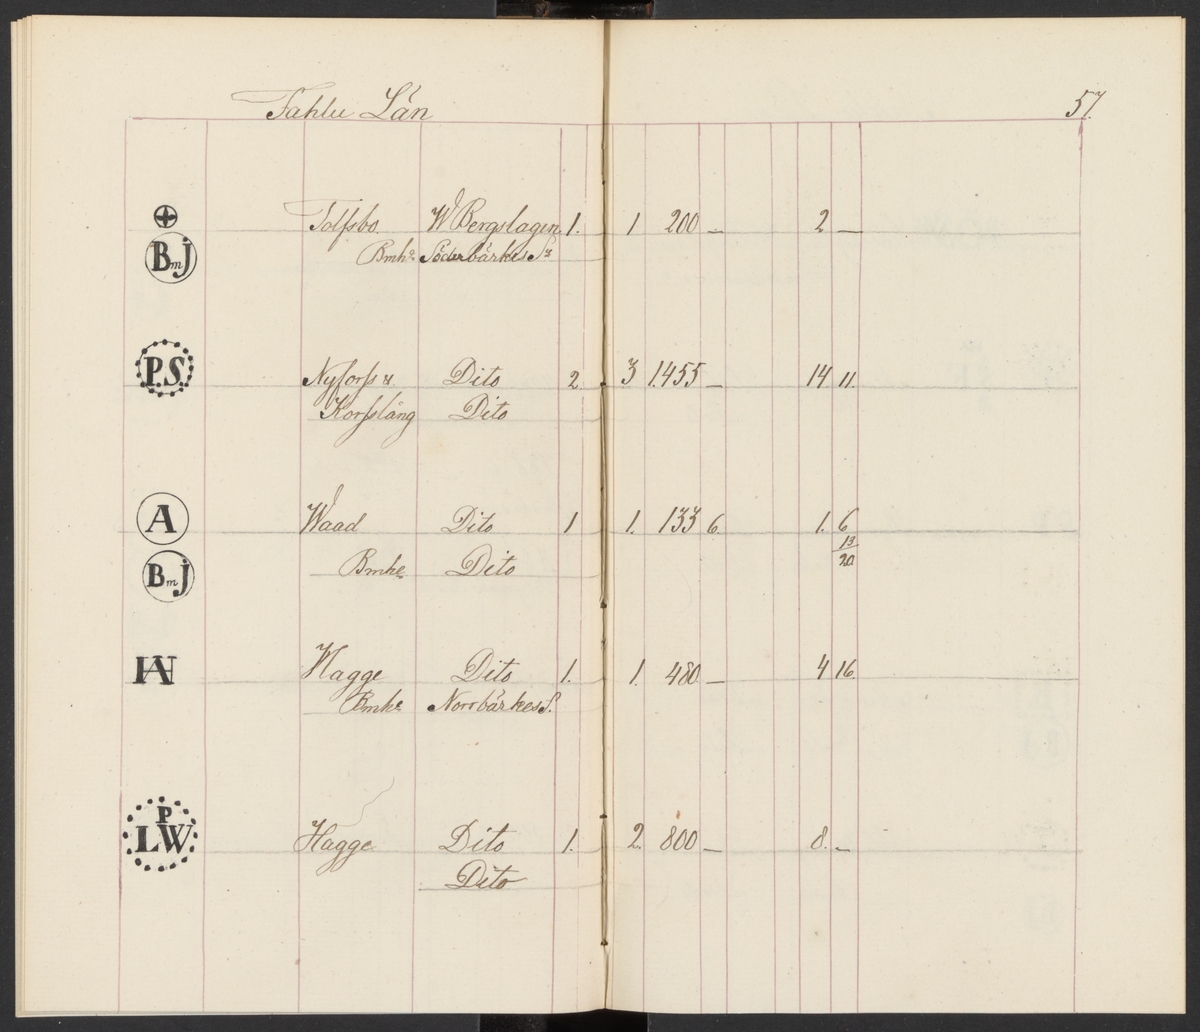 Fahlu Län 57.
Tolfsbo W Bergslagen 1. 1 200 — 2 —
BmJ Bmhe Söderbärkes Sn
P.S. Nyforss & Dito 2 3 1.455 — 14 11.
Korsslång Dito
A Waad Dito 1 1. 133 6. 1. 6
13
BmJ Bmhe Dito 20
Hagge Dito 1. 1. 480 — 4 16.
Bmhe Norrbärkes S.
P
LW Hagge Dito 1. 2. 800 — 8. —
Dito